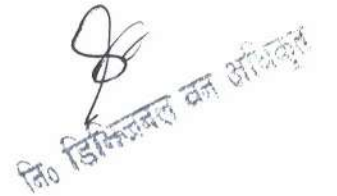 नि० डिभिजनल वन अधिकृत